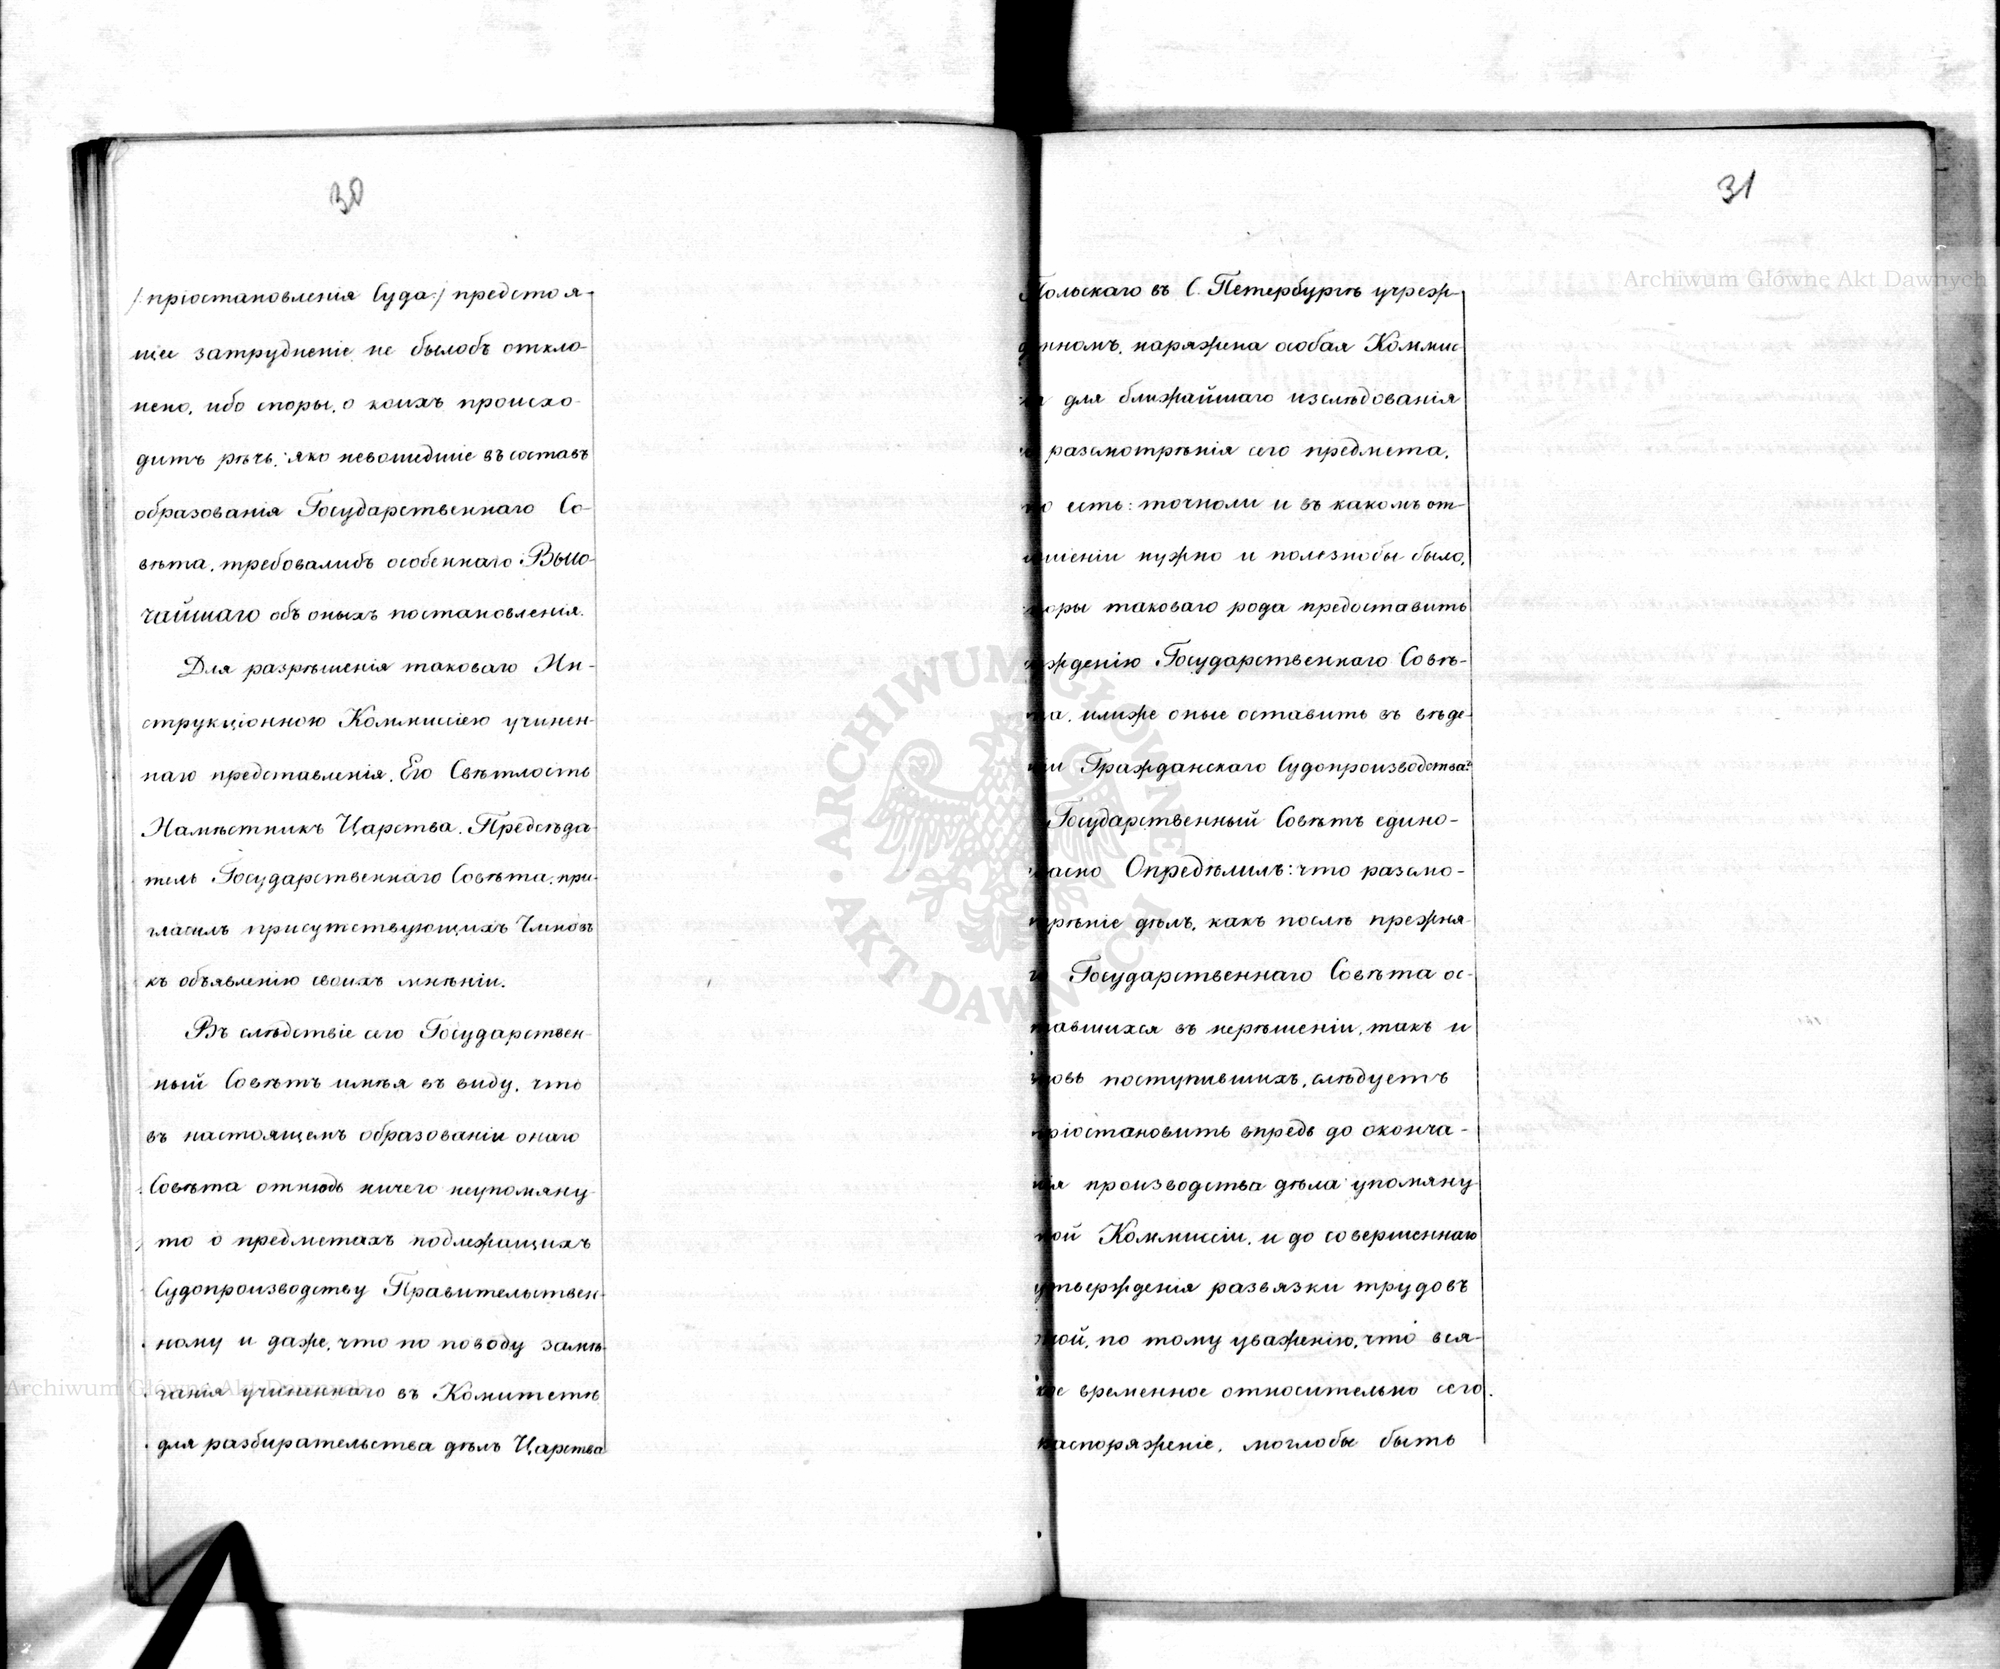 30
/:пріостановленія Суда:/ предстоя-
щее затрудненіе не былобъ откло-
нено, ибо споры, о коихъ происхо-
дитъ рѣчь, яко невошедшіе въ составъ
образованія Государственнаго Со-
вѣта, требовалибъ особеннаго Высо-
чайшаго объ оныхъ постановленія.
Для разрѣшенія таковаго Ин-
струкціонною Коммисіею учинен-
наго представленія, Его Свѣтлость
Намѣстникъ Царства, Предсѣда-
тель Государственнаго Совѣта, при-
гласилъ присутствующихъ Членовъ
къ объявленію своихъ мнѣніи.
Въ слѣдствіе сего Государствен-
ный Совѣтъ имѣя въ виду, что
въ настоящемъ образованіи онаго
Совѣта отнюдь ничего неупомяну-
то о предметахъ подлежащихъ
Судопроизводству Правительствен-
ному и даже, что по поводу замѣ-
чанія учиненнаго въ Комитетѣ
для разбирательства дѣлъ Царства
31
Польскаго въ С. Петербургѣ учреж-
деннomъ, наряжена особая Коммис-
для ближайшаго изслѣдованія
разсмотрѣнія сего предмета,
то есть: точноли и въ какомъ от-
ношеніи нужно и полезнобы было,
споры таковаго рода предоставить
сужденію Государственнаго Совѣ-
та, илиже оные оставить въ вѣде-
ніи Гражданскаго Судопроизводства:
Государственный Совѣтъ едино-
гласно Опредѣлилъ: что разсмо-
трѣніе дѣлъ, какъ послѣ прежня-
го Государственнаго Совѣта ос-
тавшихся въ нерѣшеніи, такъ и
вновь поступившихъ, слѣдуетъ
пріостановить впредь до оконча-
нія производства дѣла упомяну-
той Коммиссіи, и до совершеннаго
утвержденія развязки трудовъ
той, по тому уваженію, что вся-
кое временное относительно сего
распоряженіе, моглобы быть
Archiwum Główne Akt Dawnych
Archiwum Główne Akt Dawnych
ARCHIWUM GŁÓWNE
AKT DAWNYCH